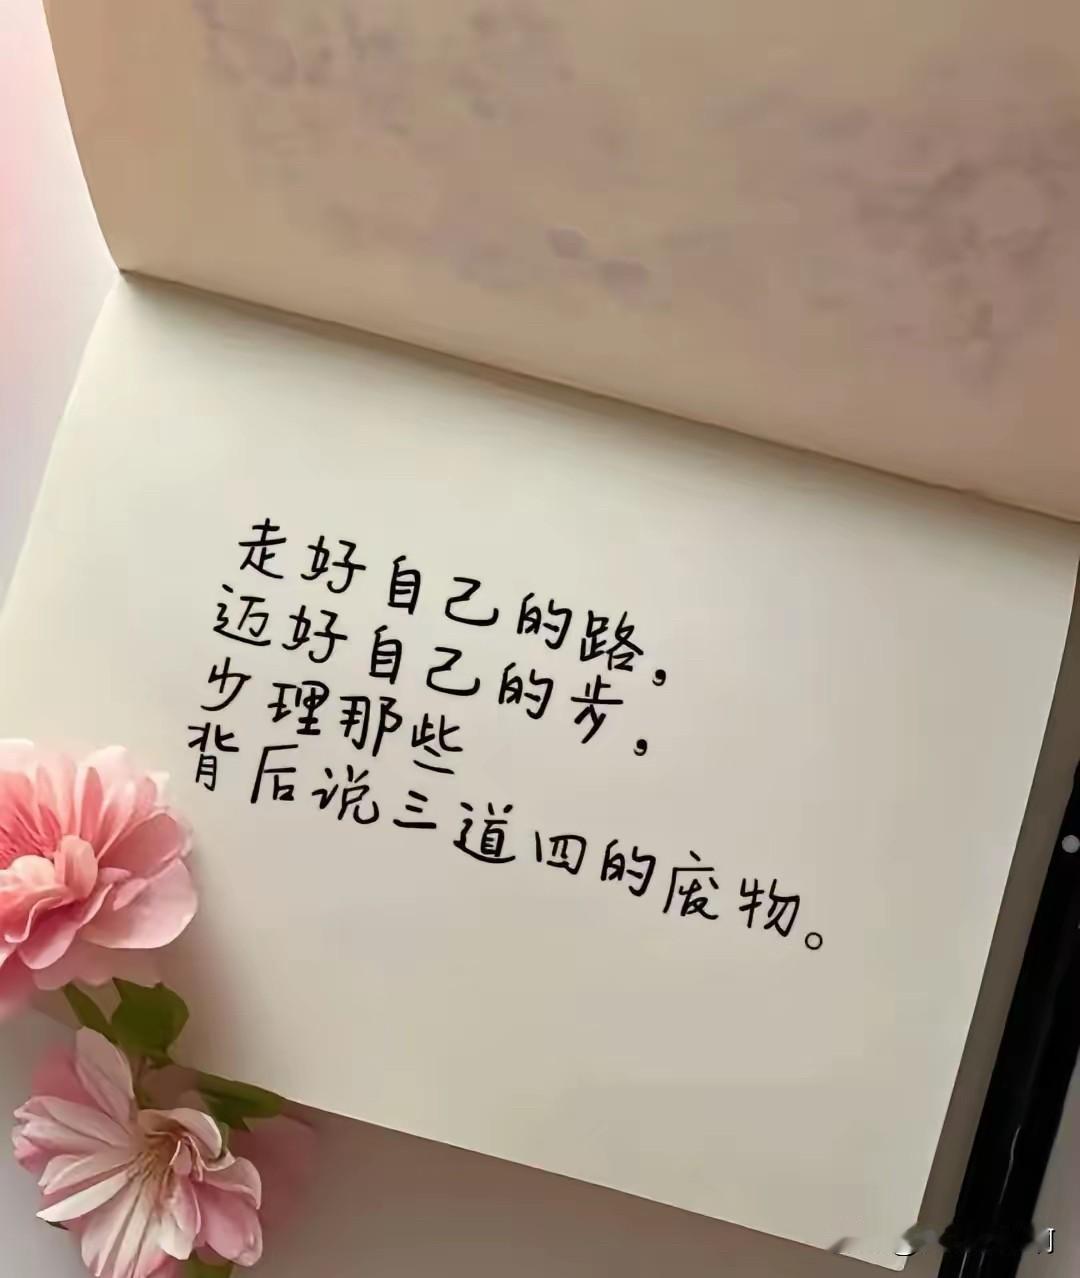 走好自己的路，
迈好自己的步，
少理那些
背后说三道四的废物。